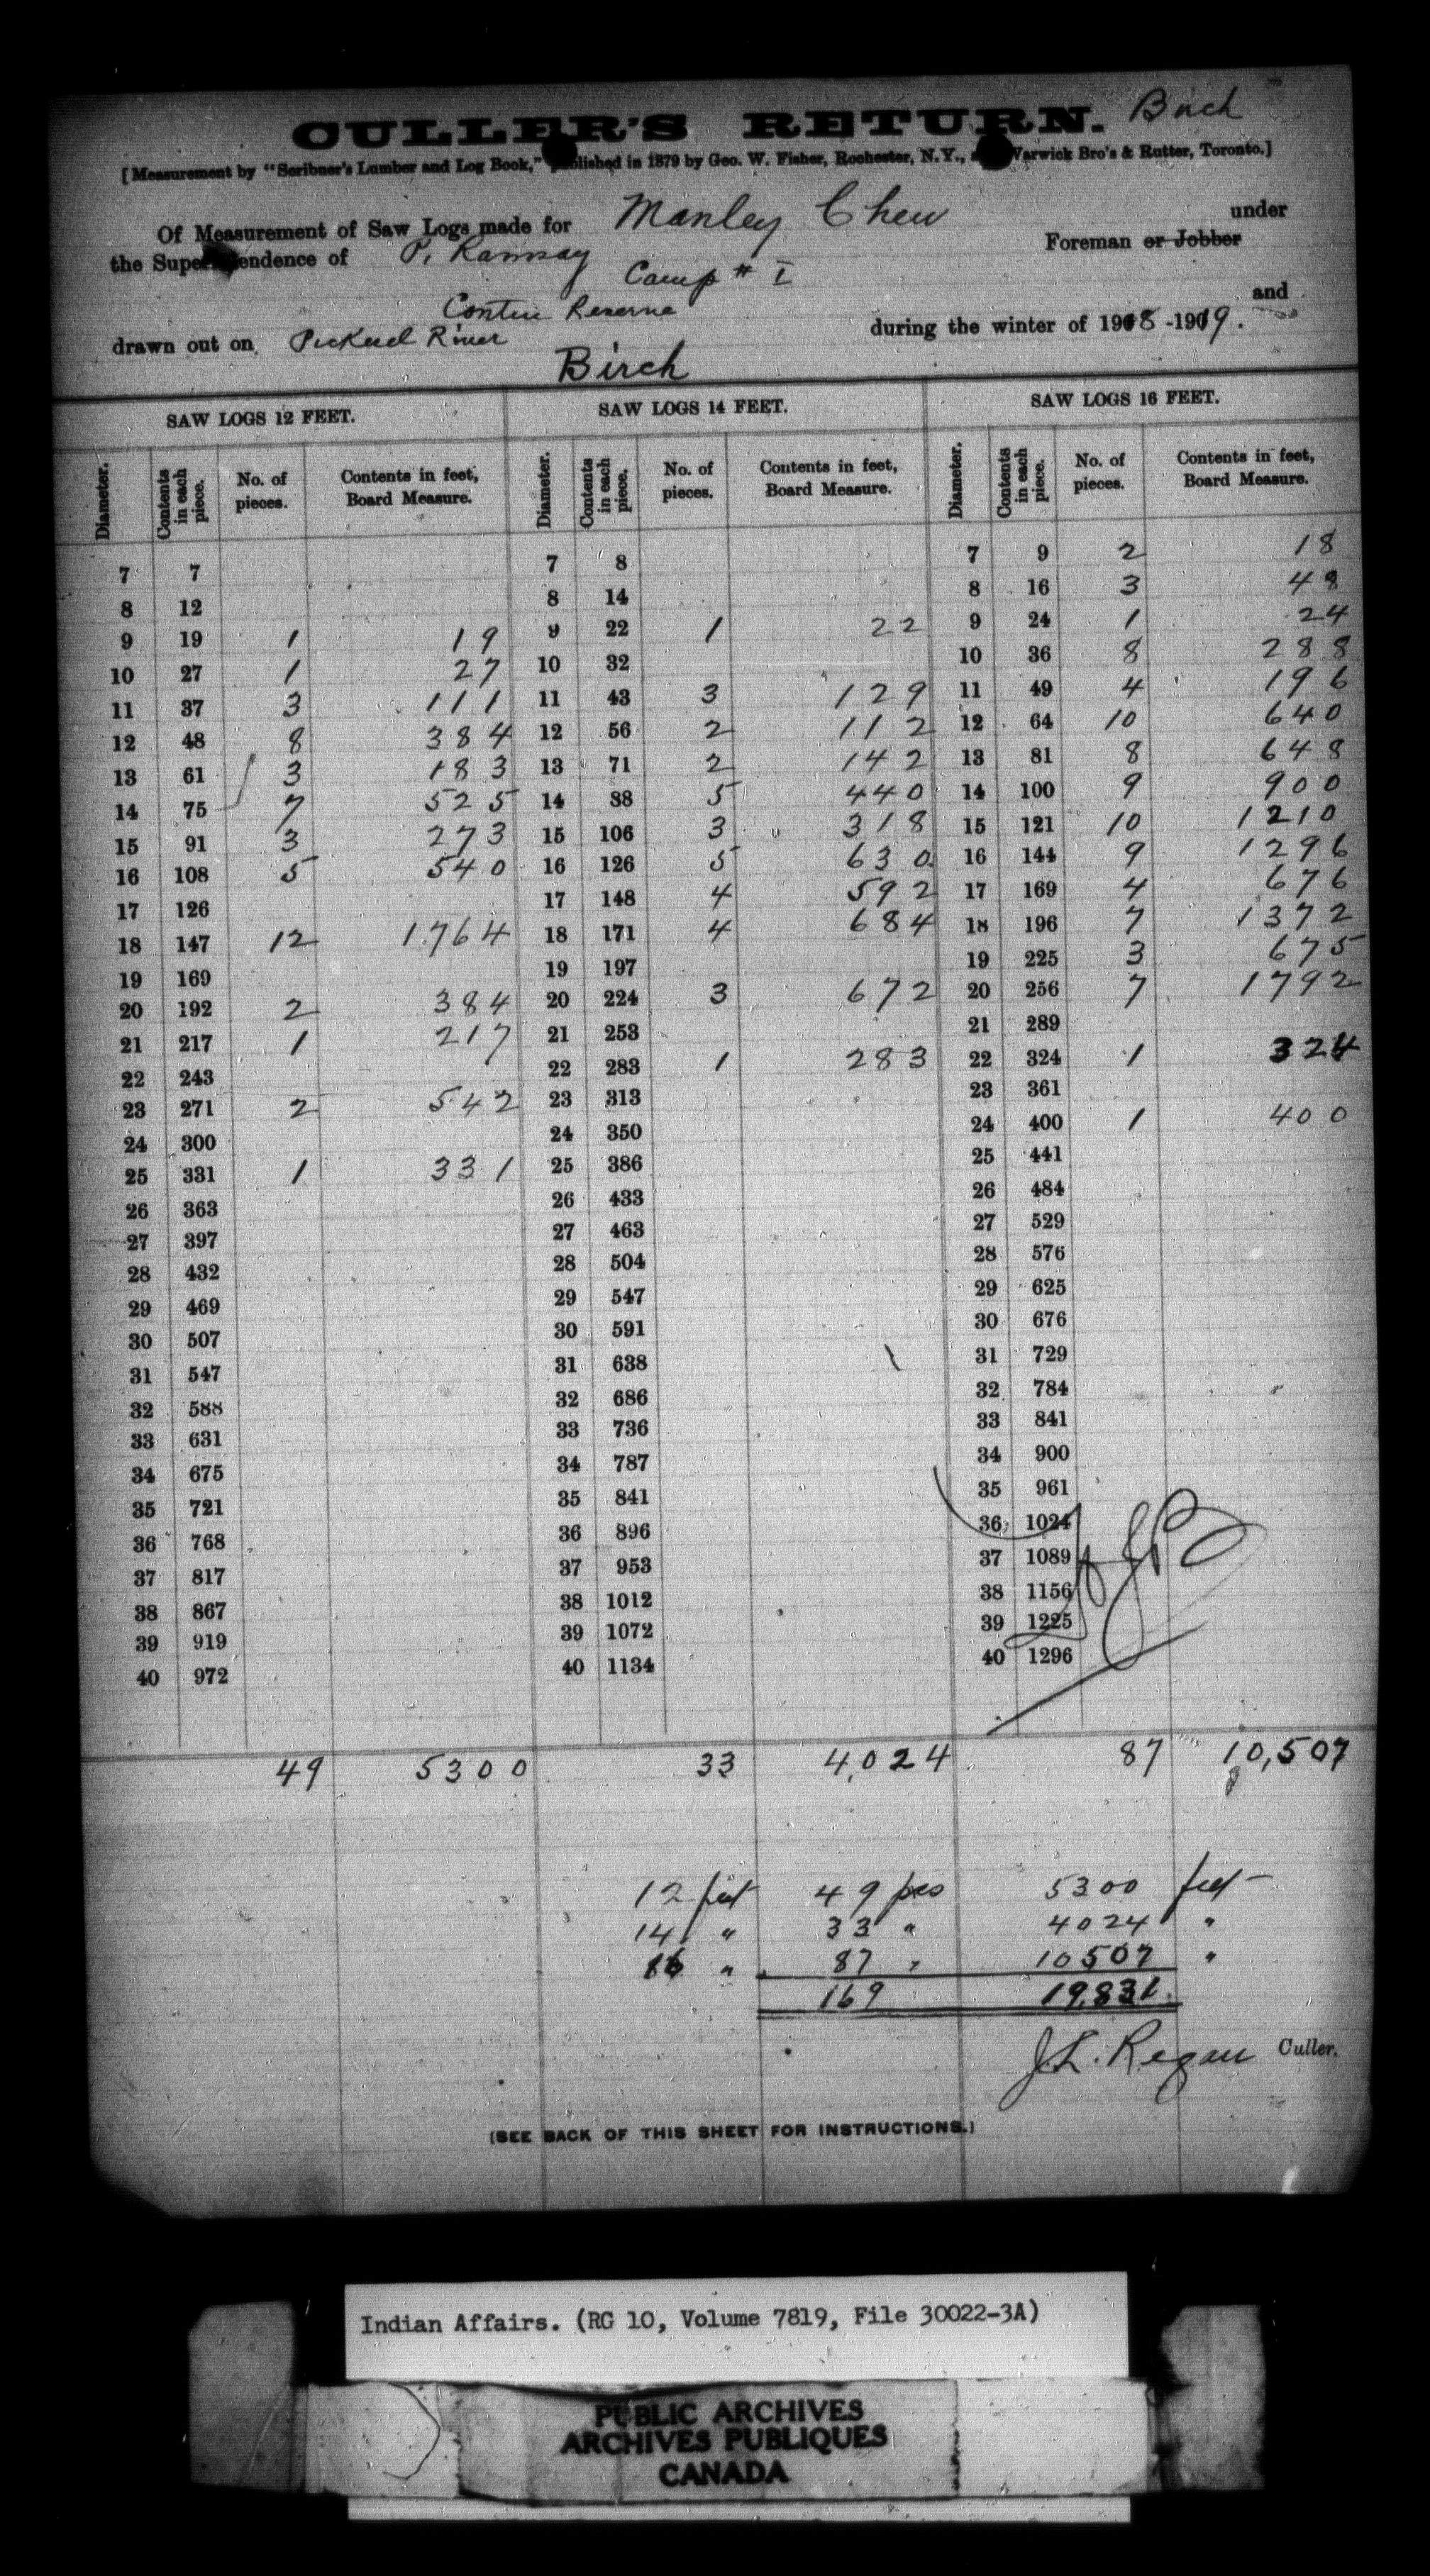 CULLER'S RETURN. Birch
[Measurement by "Scribner's Lumber and Log Book," published in 1879 by Geo. W. Fisher, Rochester, N.Y., Warwick Bro's & Rutter, Toronto.]
Of Measurement of Saw Logs made for Manley Chew under
the Superintendence of P. Ramsay Foreman or Jobber
Camp # I
Reserve and
drawn out on Pickerel River during the winter of 1918-1919.
Birch
SAW LOGS 12 FEET. SAW LOGS 14 FEET. SAW LOGS 16 FEET.
Diameter. Contents in each piece. No. of pieces. Contents in feet, Board Measure. Diameter. Contents in each piece. No. of pieces. Contents in feet, Board Measure. Diameter. Contents in each piece. No. of pieces. Contents in feet, Board Measure.
7 7 7 8 7 9 2 18
8 12 8 14 8 16 3 48
9 19 1 19 9 22 1 22 9 24 1 24
10 27 1 27 10 32 10 36 8 288
11 37 3 111 11 43 3 129 11 49 4 196
12 48 8 384 12 56 2 112 12 64 10 640
13 61 3 183 13 71 2 142 13 81 8 648
14 75 7 525 14 88 5 440 14 100 9 900
15 91 3 273 15 106 3 318 15 121 10 1210
16 108 5 540 16 126 5 630 16 144 9 1296
17 126 17 148 4 592 17 169 4 676
18 147 12 1764 18 171 4 684 18 196 7 1372
19 169 19 197 19 225 3 675
20 192 2 384 20 224 3 672 20 256 7 1792
21 217 1 217 21 253 21 289
22 243 22 283 1 283 22 324 1 324
23 271 2 542 23 313 23 361
24 300 24 350 24 400 1 400
25 331 1 331 25 386 25 441
26 363 26 433 26 484
27 397 27 463 27 529
28 432 28 504 28 576
29 469 29 547 29 625
30 507 30 591 30 676
31 547 31 638 31 729
32 588 32 686 32 784
33 631 33 736 33 841
34 675 34 787 34 900
35 721 35 841 35 961
36 768 36 896 36 1024
37 817 37 953 37 1089
38 867 38 1012 38 1156
39 919 39 1072 39 1225
40 972 40 1134 40 1296
49 5300 33 4,024 87 10,507
12 feet 49 pcs 5300 feet
14 " 33 " 4024 "
16 " 87 " 10507 "
169 19,831
J.L. Regan Culler.
[SEE BACK OF THIS SHEET FOR INSTRUCTIONS.]
Indian Affairs. (RG 10, Volume 7819, File 30022-3A)
PUBLIC ARCHIVES
ARCHIVES PUBLIQUES
CANADA